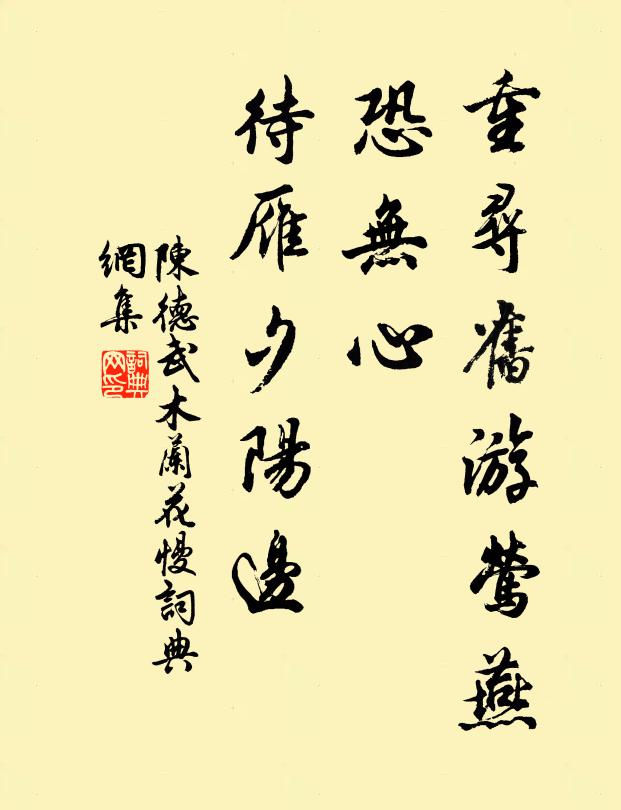 重尋舊游鶯燕
恐無心
待雁夕陽邊
陳德武木蘭花慢詞典
網集
詞典
网印